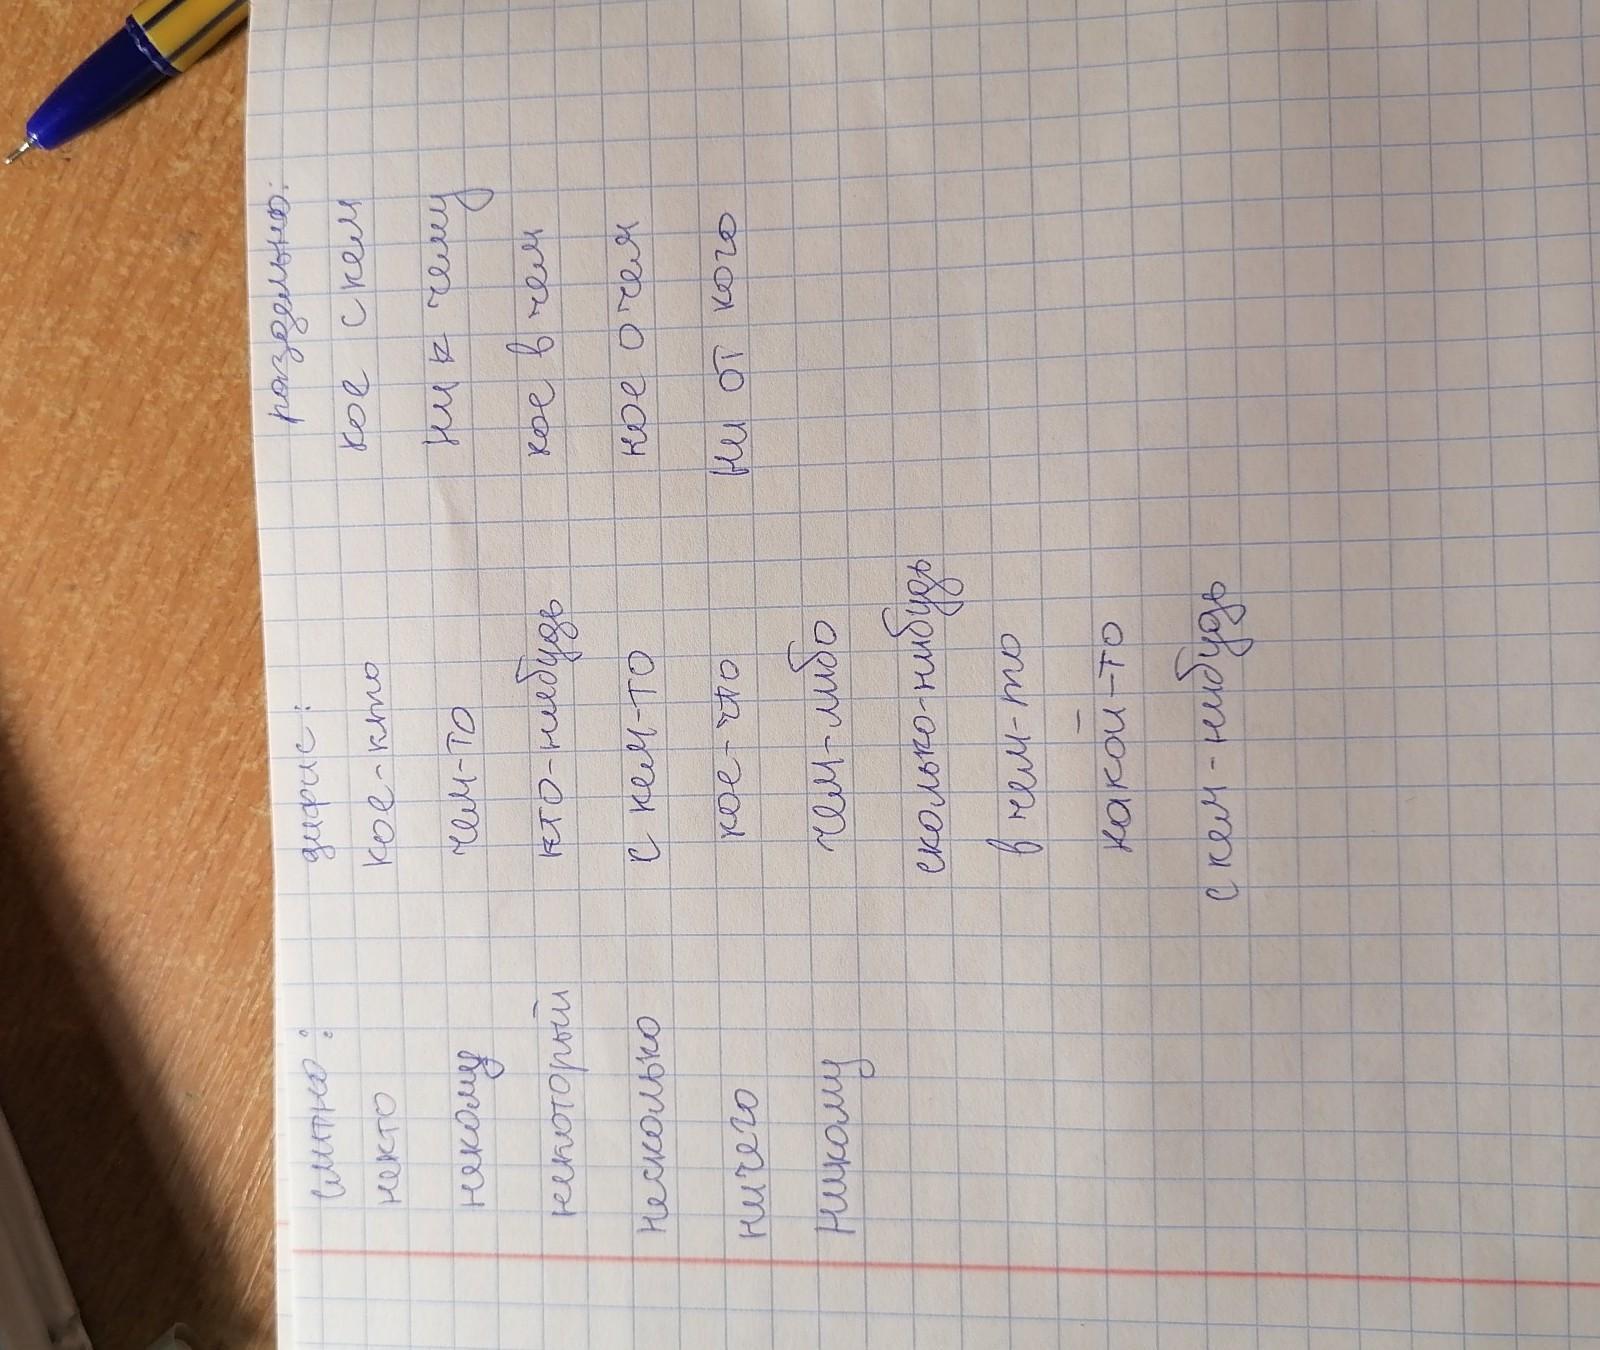 слитно: дифис: раздельно:
некто кое-кто кое с кем
некому чем-то ни к чему
некоторый кто-нибудь кое в чем
несколько с кем-то кое о чем
ничего кое-что ни от кого
никому чем-либо
сколько-нибудь
в чем-то
какой-то
с кем-нибудь